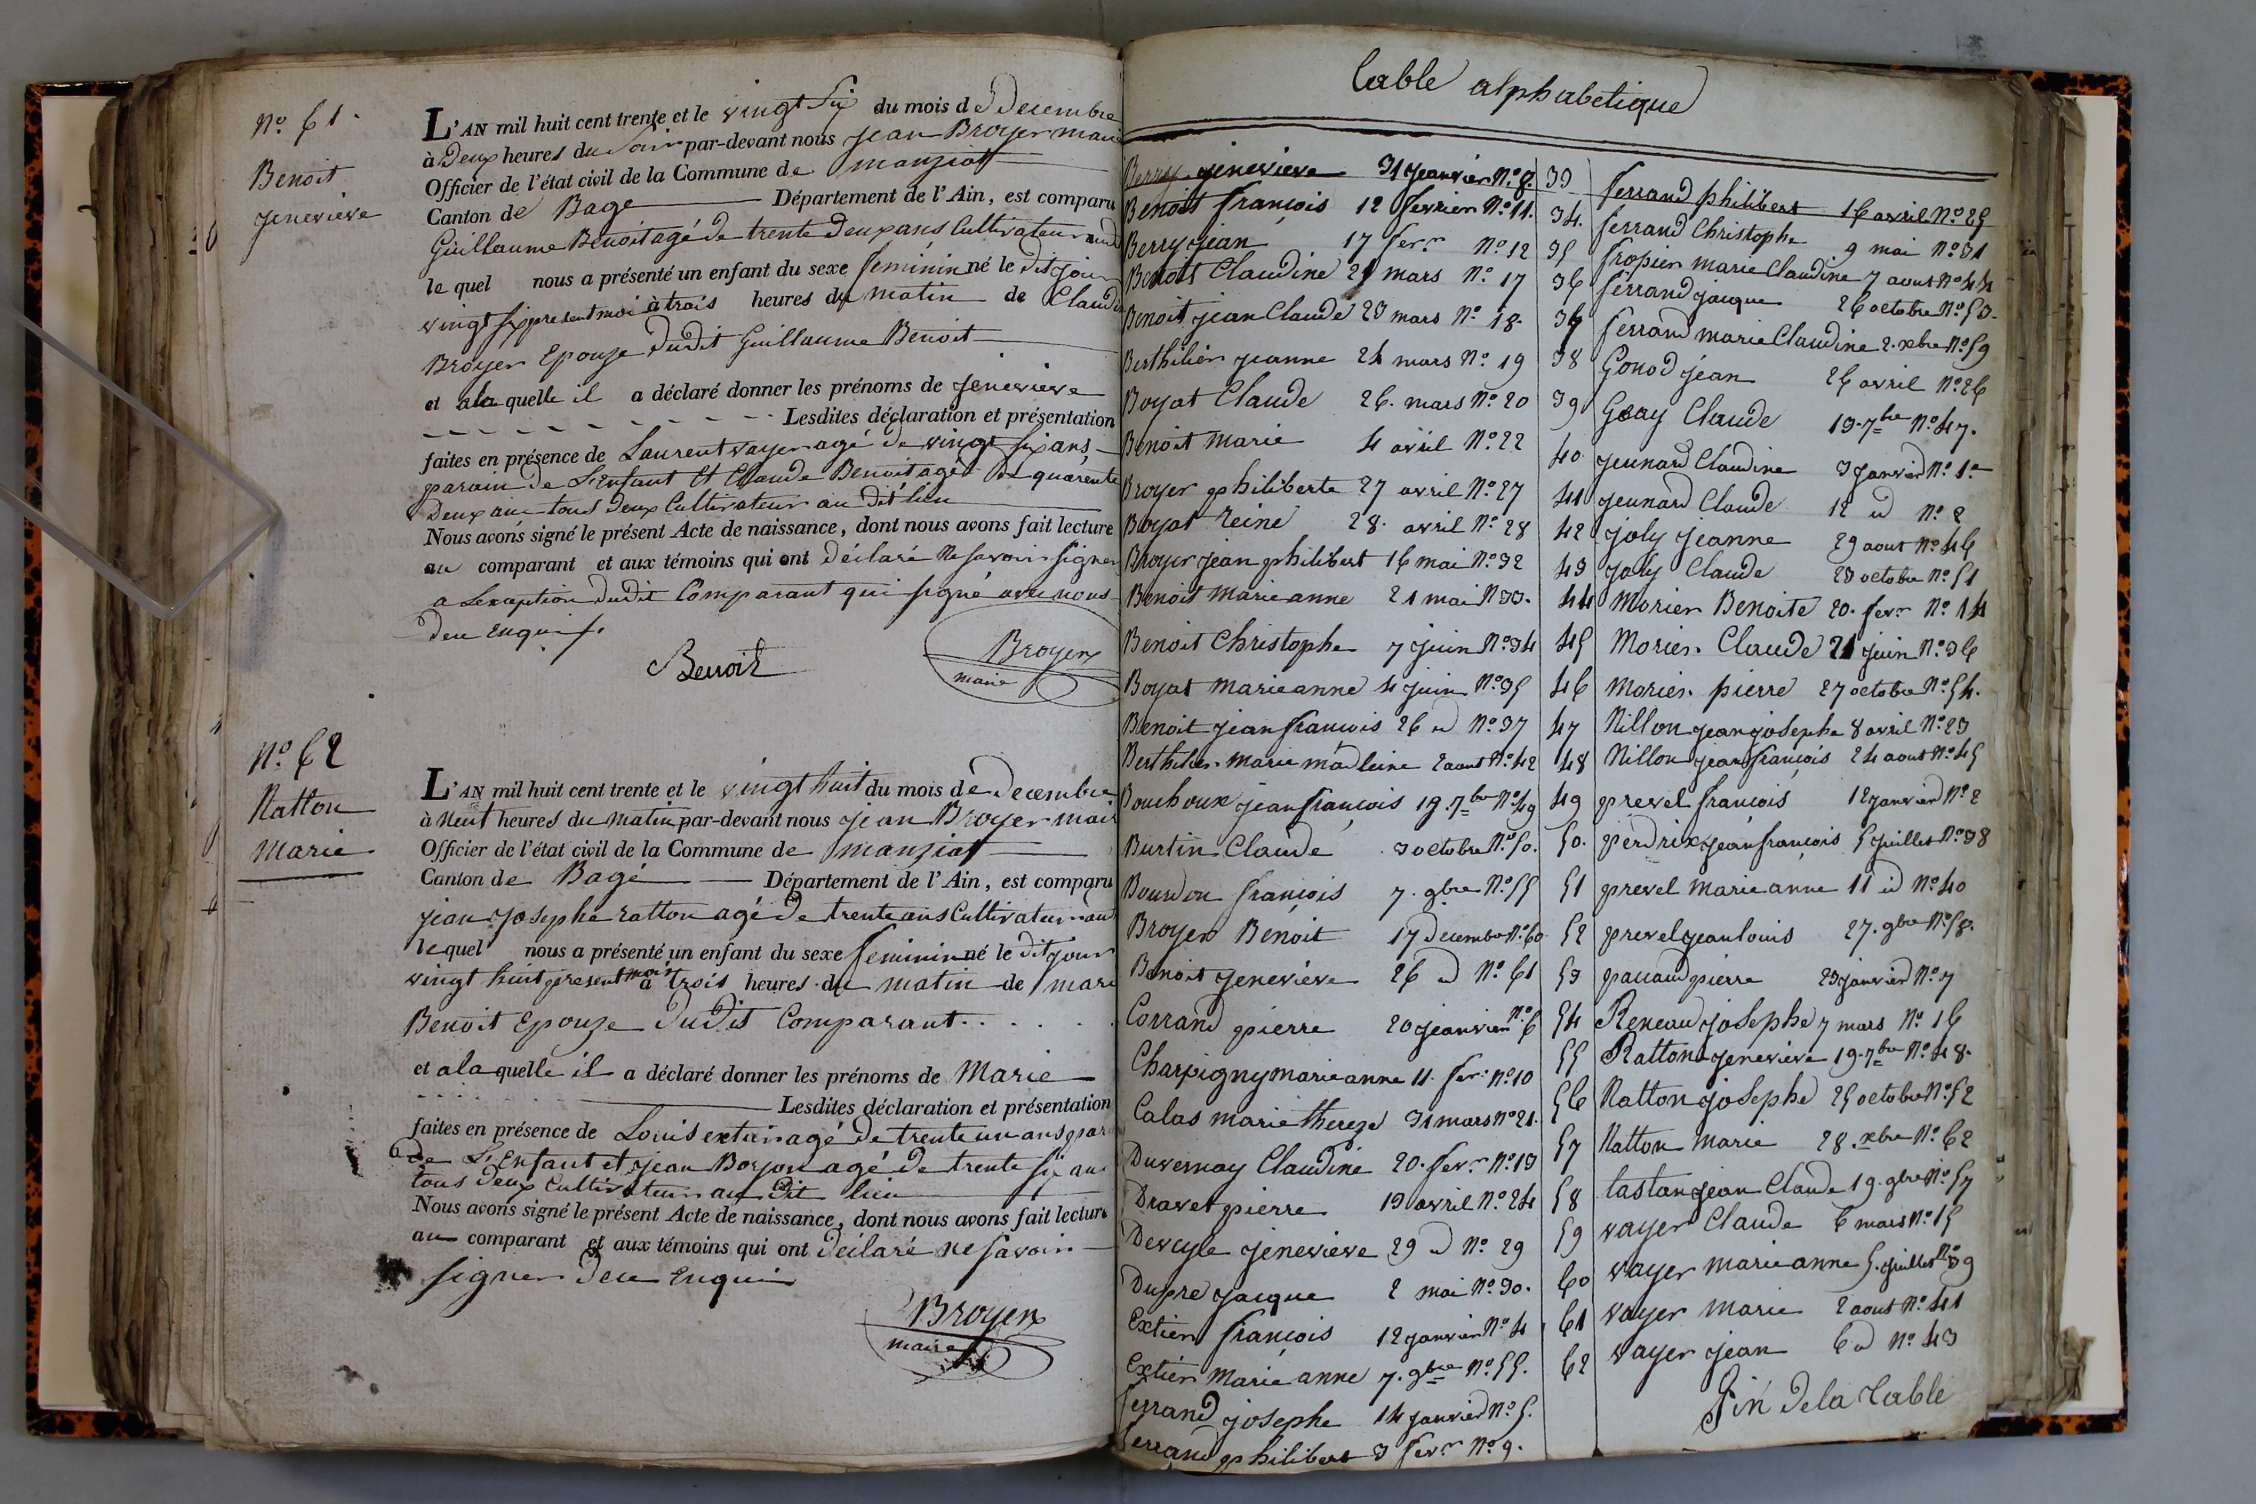 N.o 61.
Benoit
jenevieve
L'AN mil huit cent trente et le vingt Six du mois de Decembre
à Deux heures du Soir par-devant nous jean Broyer maire
Officier de l'état civil de la Commune de manziat
Canton de Bagé Département de l'Ain, est comparu
Guillaume Benoit agé de trente Deux ans Cultivateur
le quel nous a présenté un enfant du sexe feminin né le dit jour
vingt Six present moi à trois heures du matin de Claudine
Broyer Epouze dudit Guillaume Benoit
et a la quelle il a déclaré donner les prénoms de jenevieve
Lesdites déclaration et présentation
faites en présence de Laurent vayer agé de vingt Six ans
parain de L'Enfant Et Claude Benoit agé de quarente
Deux ans tous Deux Cultivateur au dit lieu
Nous avons signé le présent Acte de naissance, dont nous avons fait lecture
au comparant et aux témoins qui ont déclaré Ne savoir signer
a Lexception dudit Comparant qui signé avec nous
deu Enquis.
Benoit
Broyer
maire
N.o 62
Ratton
Marie
L'AN mil huit cent trente et le vingt huit du mois de Decembre
à Neuf heures du matin par-devant nous jean Broyer maire
Officier de l'état civil de la Commune de manziat
Canton de Bagé Département de l'Ain, est comparu
jean josephe ratton agé de trente ans Cultivateur
le quel nous a présenté un enfant du sexe feminin né le dit jour
vingt huit present mois à trois heures du matin de marie
Benoit Epouze dudit Comparant
et a la quelle il a déclaré donner les prénoms de Marie
Lesdites déclaration et présentation
faites en présence de Louis extier agé de trente un ans parain
de L'Enfant et jean Boyon agé de trente six ans
tous deux Cultivateur au dit lieu
Nous avons signé le présent Acte de naissance, dont nous avons fait lecture
au comparant et aux témoins qui ont déclaré ne savoir
signer deu Enquis
Broyer
maire
table alphabetique
Berry jenevieve 31 jeanvier N.o 8.
Benoit francois 12 fevrier N.o 11.
Berry jean 17 fevr. N.o 12
Benoit Claudine 21 mars N.o 17
Benoit jean Claude 23 mars N.o 18.
Berthilier jeanne 24 mars N.o 19
Boyat Claude 26. mars N.o 20
Benoit Marie 4 avril N.o 22
Broyer philiberte 27 avril N.o 27
Boyat reine 28. avril N.o 28
Broyer jean philibert 16 mai N.o 32
Benoit Marie anne 21 mai N 33.
Benoit Christophe 7 juin N.o 34
Boyat marie anne 4 juin N.o 35
Benoit jean francois 26 id N.o 37
Berthilier marie madleine 2 aout N.o 42
Bouchoux jean francois 19. 7bre N.o 49
Burtin Claude 3 octobre N.o 50.
Bourdon francois 7. 9bre N.o 55
Broyer Benoit 17 Decembre N.o 60
Benoit jenevieve 26 id N.o 61
Corrand pierre 20 jeanvier N.o 6
Charpigny marie anne 11. fevr. N.o 10
Calas marie thereze 31 mars N.o 21.
Duvernay Claudine 20. fevr. N.o 13
Dravet pierre 19 avril N.o 24
Devcyle jenevieve 29 id N.o 29
Dupre jacque 2 mai N.o 30.
Extier francois 12 janvier N.o 4
Extier Marie anne 7. 9bre N.o 55.
ferrand josephe 14 janvier N.o 5.
ferrand philibert 3 fevr. N.o 9.
33 ferrand philibert 16 avril N.o 25
34. ferrand Christophe 9 mai N.o 31
35 fropier marie Claudine 7 aout N.o 44
36 ferrand jacque 26 octobre N.o 53.
37 ferrand marie Claudine 2. xbre N.o 59
38 Gonod jean 26 avril N.o 26
39 Geay Claude 13. 7bre N.o 47.
40 jeunard Claudine 3 janvier N.o 1.er
41 jeunard Claude 12 id N.o 2
42 joly jeanne 29 aout N.o 46
43 joly Claude 23 octobre N.o 51
44 Morier Benoite 20. fevr. N.o 14
45 Morier. Claude 21 juin N.o 36
46 Morier. pierre 27 octobre N.o 54.
47 Nillon jean josephe 8 avril N.o 23
48 Nillon jean francois 24 aout N.o 45
49 prevel francois 12 janvier N.o 2
50. perdrix jean francois 5 juillet N.o 38
51 prevel Marie anne 11 id N.o 40
52 prevel jean louis 27. 9bre N.o 58.
53 pauand pierre 23 janvier N.o 7
54 Reneaud josephe 7 mars N.o 16
55 Ratton jenevieve 19. 7bre N.o 48.
56 Ratton josephe 25 octobre N.o 52
57 Ratton Marie 28. xbre N.o 62
58 tastan jean Claude 19. 9bre N.o 57
59 vayer Claude 6 mars N.o 15
60 vayer marie anne 5. juillet N.o 39
61 vayer Marie 2 aout N.o 41
62 vayer jean 6 id N.o 43
Fin de la table